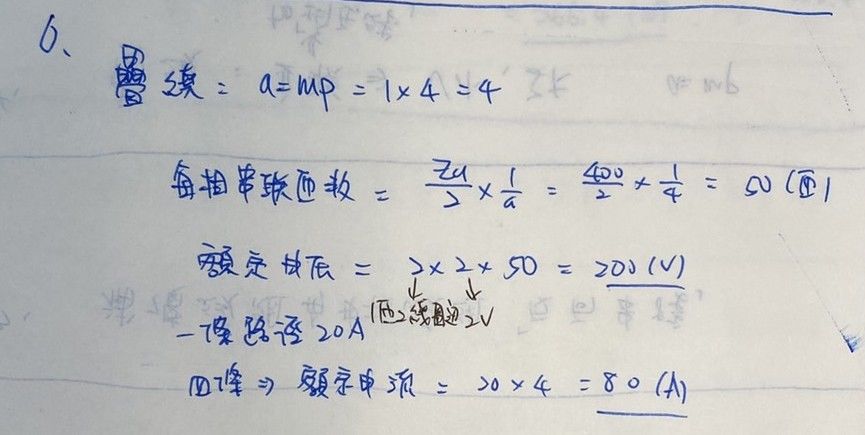 6、
疊繞：a=mp=1×4=4
每相串联匝数 = Za/2 × 1/a = 400/2 × 1/4 = 50 (匝)
額定电压 = 2×2×50 = 200 (V)
↓ ↓
1匝2線圈边 2V
一條路徑 20A
四條 ⇒ 額定申流 = 20×4 = 80 (A)